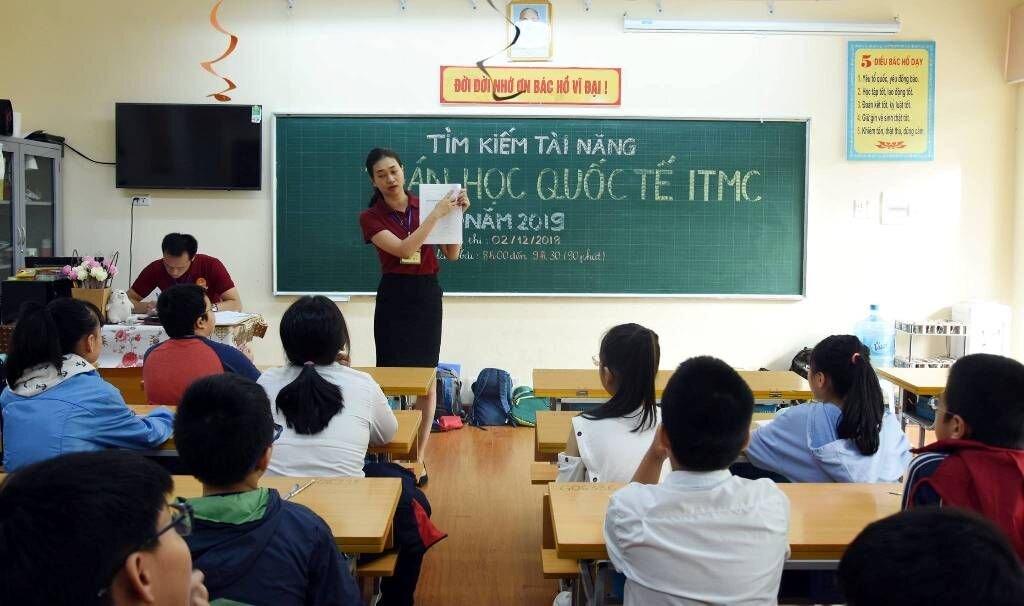 ĐỜI ĐỜI NHỚ ƠN BÁC HỒ VĨ ĐẠI !
5 ĐIỀU BÁC HỒ DẠY
1. Yêu tổ quốc, yêu đồng bào.
2. Học tập tốt, lao động tốt.
3. Đoàn kết tốt, kỷ luật tốt.
4. Giữ gìn vệ sinh thật tốt.
5. Khiêm tốn, thật thà, dũng cảm.
TÌM KIẾM TÀI NĂNG
ÁN HỌC QUỐC TẾ ITMC
NĂM 2019
thi : 02/12/2018
bài : 8h00 đến 9h30 (90 phút)